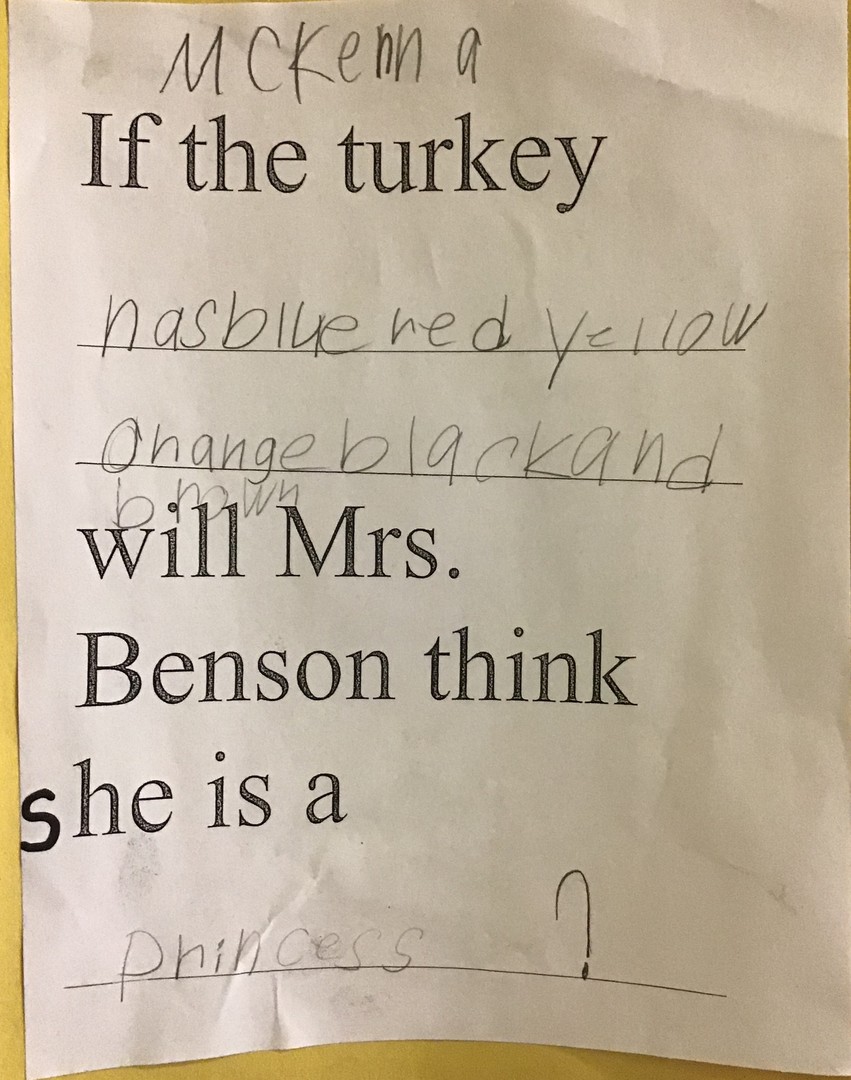 McKenna
If the turkey
hasblue red yellow
Orangeblackand
brown
will Mrs.
Benson think
she is a
princess ?